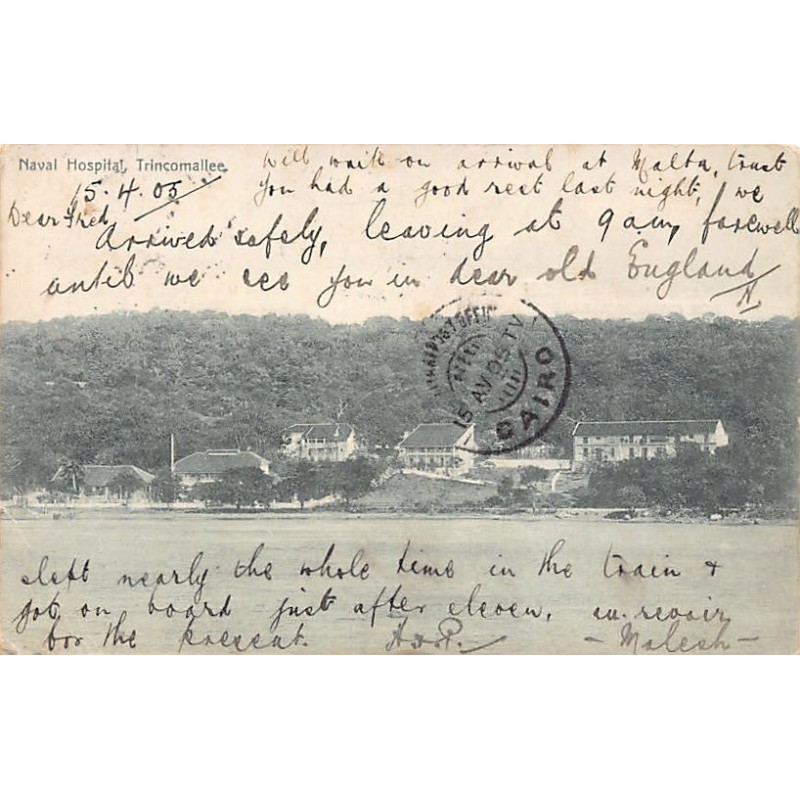 Naval Hospital, Trincomallee.
15.4.05
Will write on arrival at Malta, trust
you had a good rest last night, we
Dear Fred
Arrived safely, leaving at 9 am, farewell
until we see you in dear old England
N
CAIRO
15 AV 05 TV
slept nearly the whole time in the train +
got on board just after eleven, au revoir
for the present.
- Malesh -